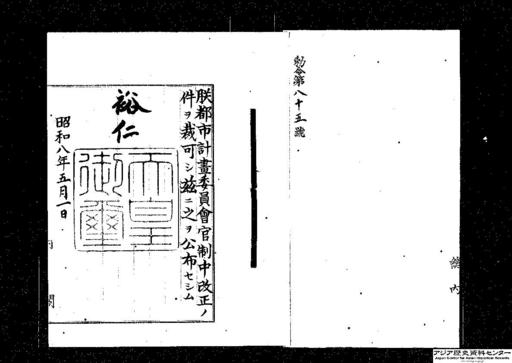 勅令第八十五號
朕都市計畫委員會官制中改正ノ
件ヲ裁可シ茲ニ之ヲ公布セシム
裕仁
天皇御璽
昭和八年五月一日
内閣
アジア歴史資料センター
Japan Center for Asian Historical Records